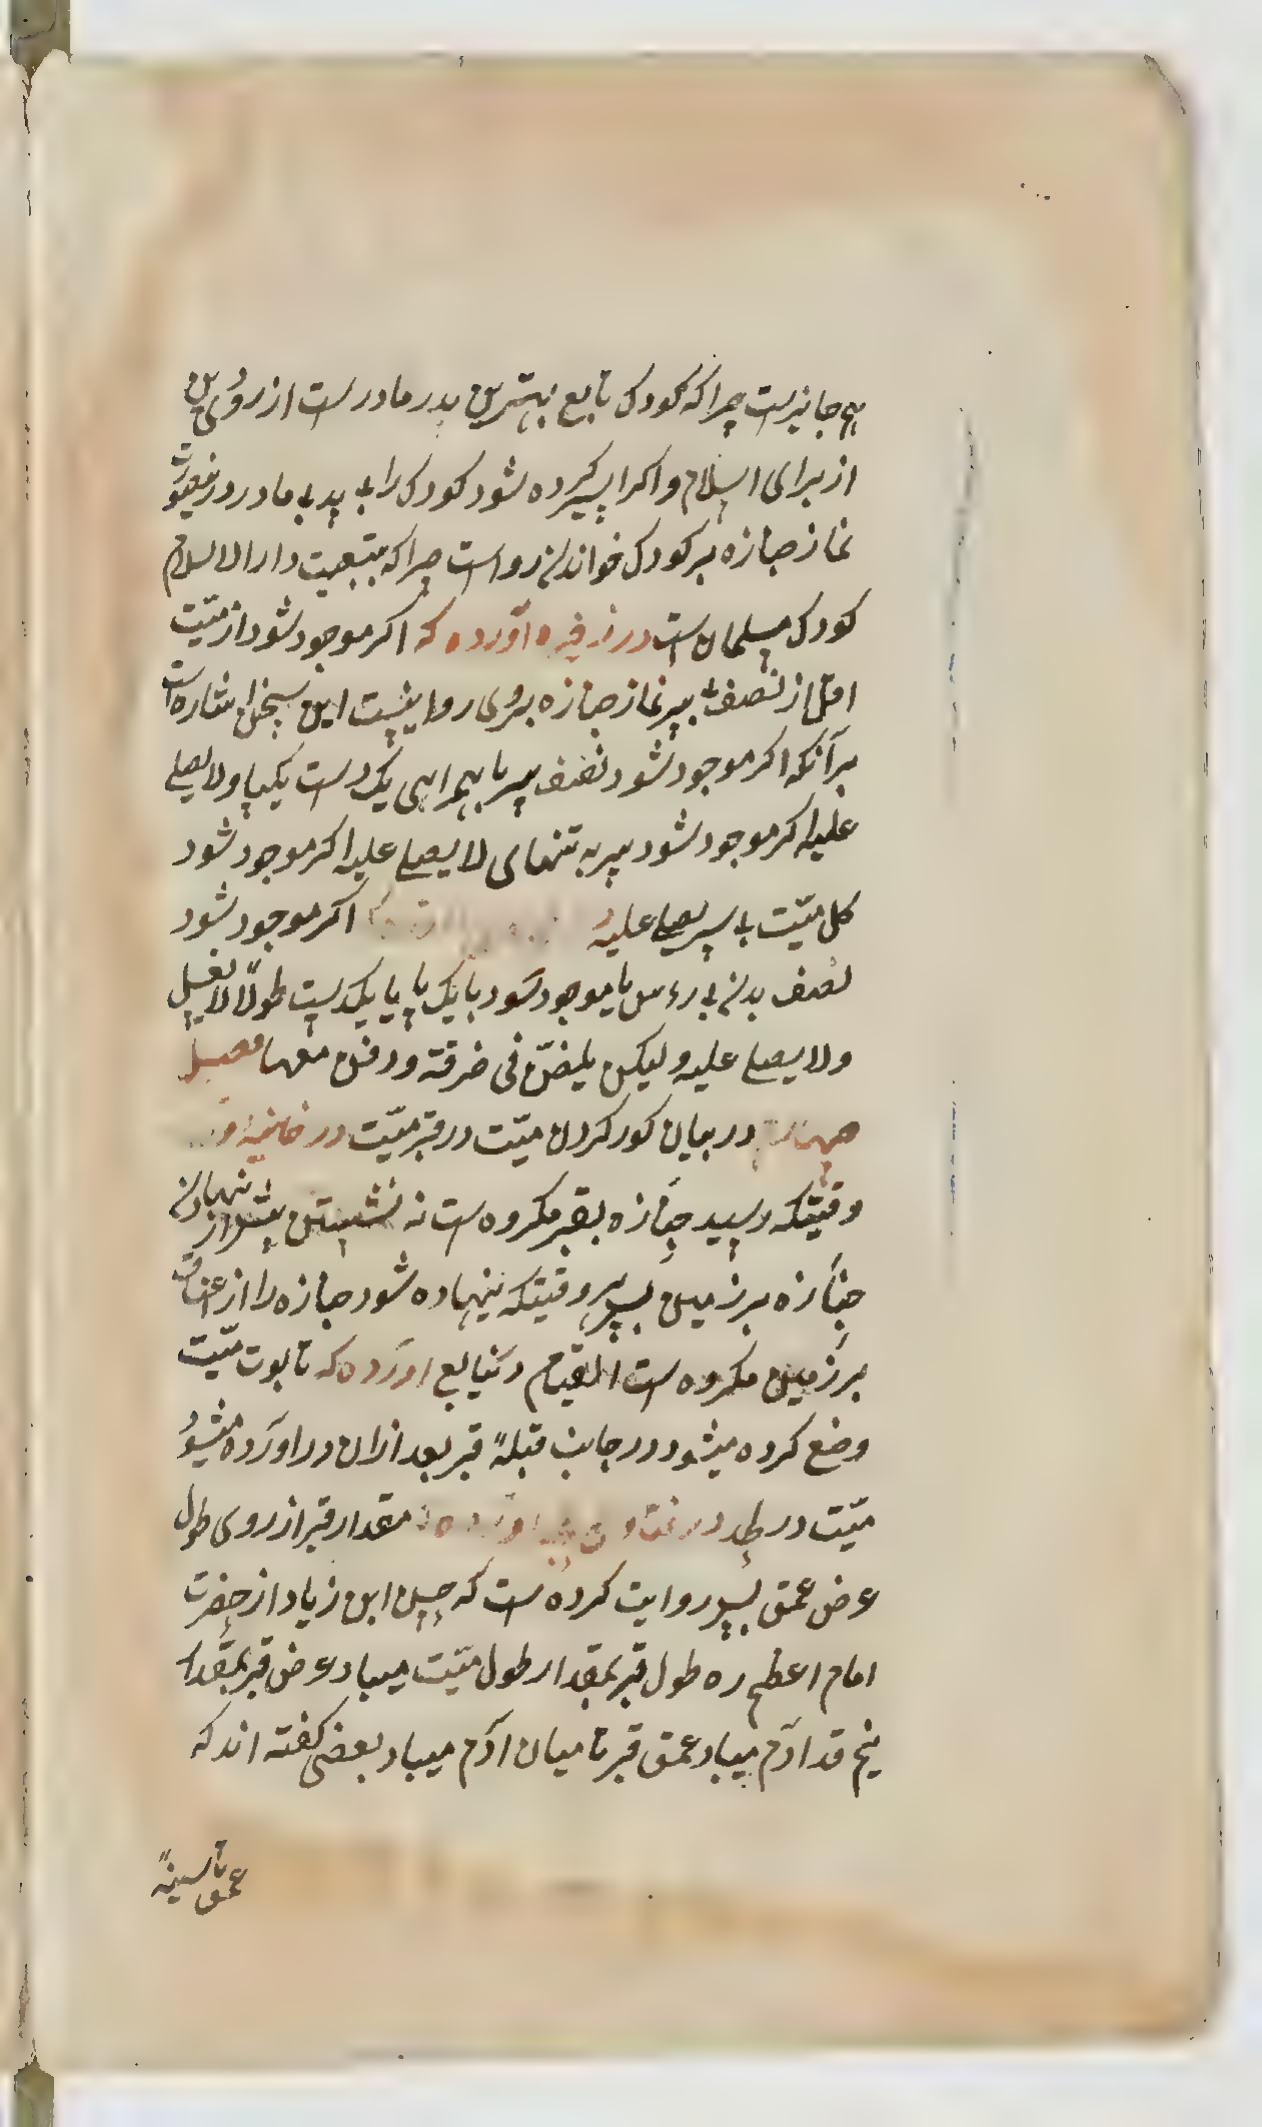 هم جائزست چراکه کودک تابع بهترین پدر مادرست از روی دین
از برای اسلام و اکر اسیر کرده شود کودک را بی پدر بی مادر درینصورت
نماز جنازه بر کودک خواندن رواست چراکه بتبعیت دار الاسلام
کودک مسلمان است در زخیره آورده که اکر موجود شود از میّت
اقل از نصف بی سر نماز جنازه بروی روا نیست این سخن اشاره است
برآنکه اکر موجود شود نصف سر با همراهی یک دست یکپا ولا یصلی
علیه اکر موجود شود سر به تنهای لا یصلی علیه اکر موجود شود
کل میّت بی سر یصلی علیه اکر موجود شود
نصف بدن بی رءس یا موجود شود با یک پا یا یکدست طولاً لا یغسل
ولا یصلی علیه ولیکن یلفّ فی خرقة ودفن معها فصل
چهارم در بیان کور کردن میّت در قبر میّت در خانیه
وقتیکه رسید جنازه بقبر مکروه است نه نشستن پیش از نهادن
جنازه بر زمین بس وقتیکه نهاده شود جنازه را از اعناق
بر زمین مکروه است القیام در ینابیع اورده که تابوت میّت
وضع کرده میشود در جانب قبلهٔ قبر بعد ازان در اورده میشود
میّت در لحد در فتاوی اورده مقدار قبر از روی طول
عرض عمق بس روایت کرده است که حسن ابن زیاد از حضرت
امام اعظم ره طول قبر بمقدار طول میّت میباد عرض قبر بمقدار
نیم قد ادم میباد عمق قبر تا میان ادم میباد بعضی کفته اند که
عمق تا سینهٔ